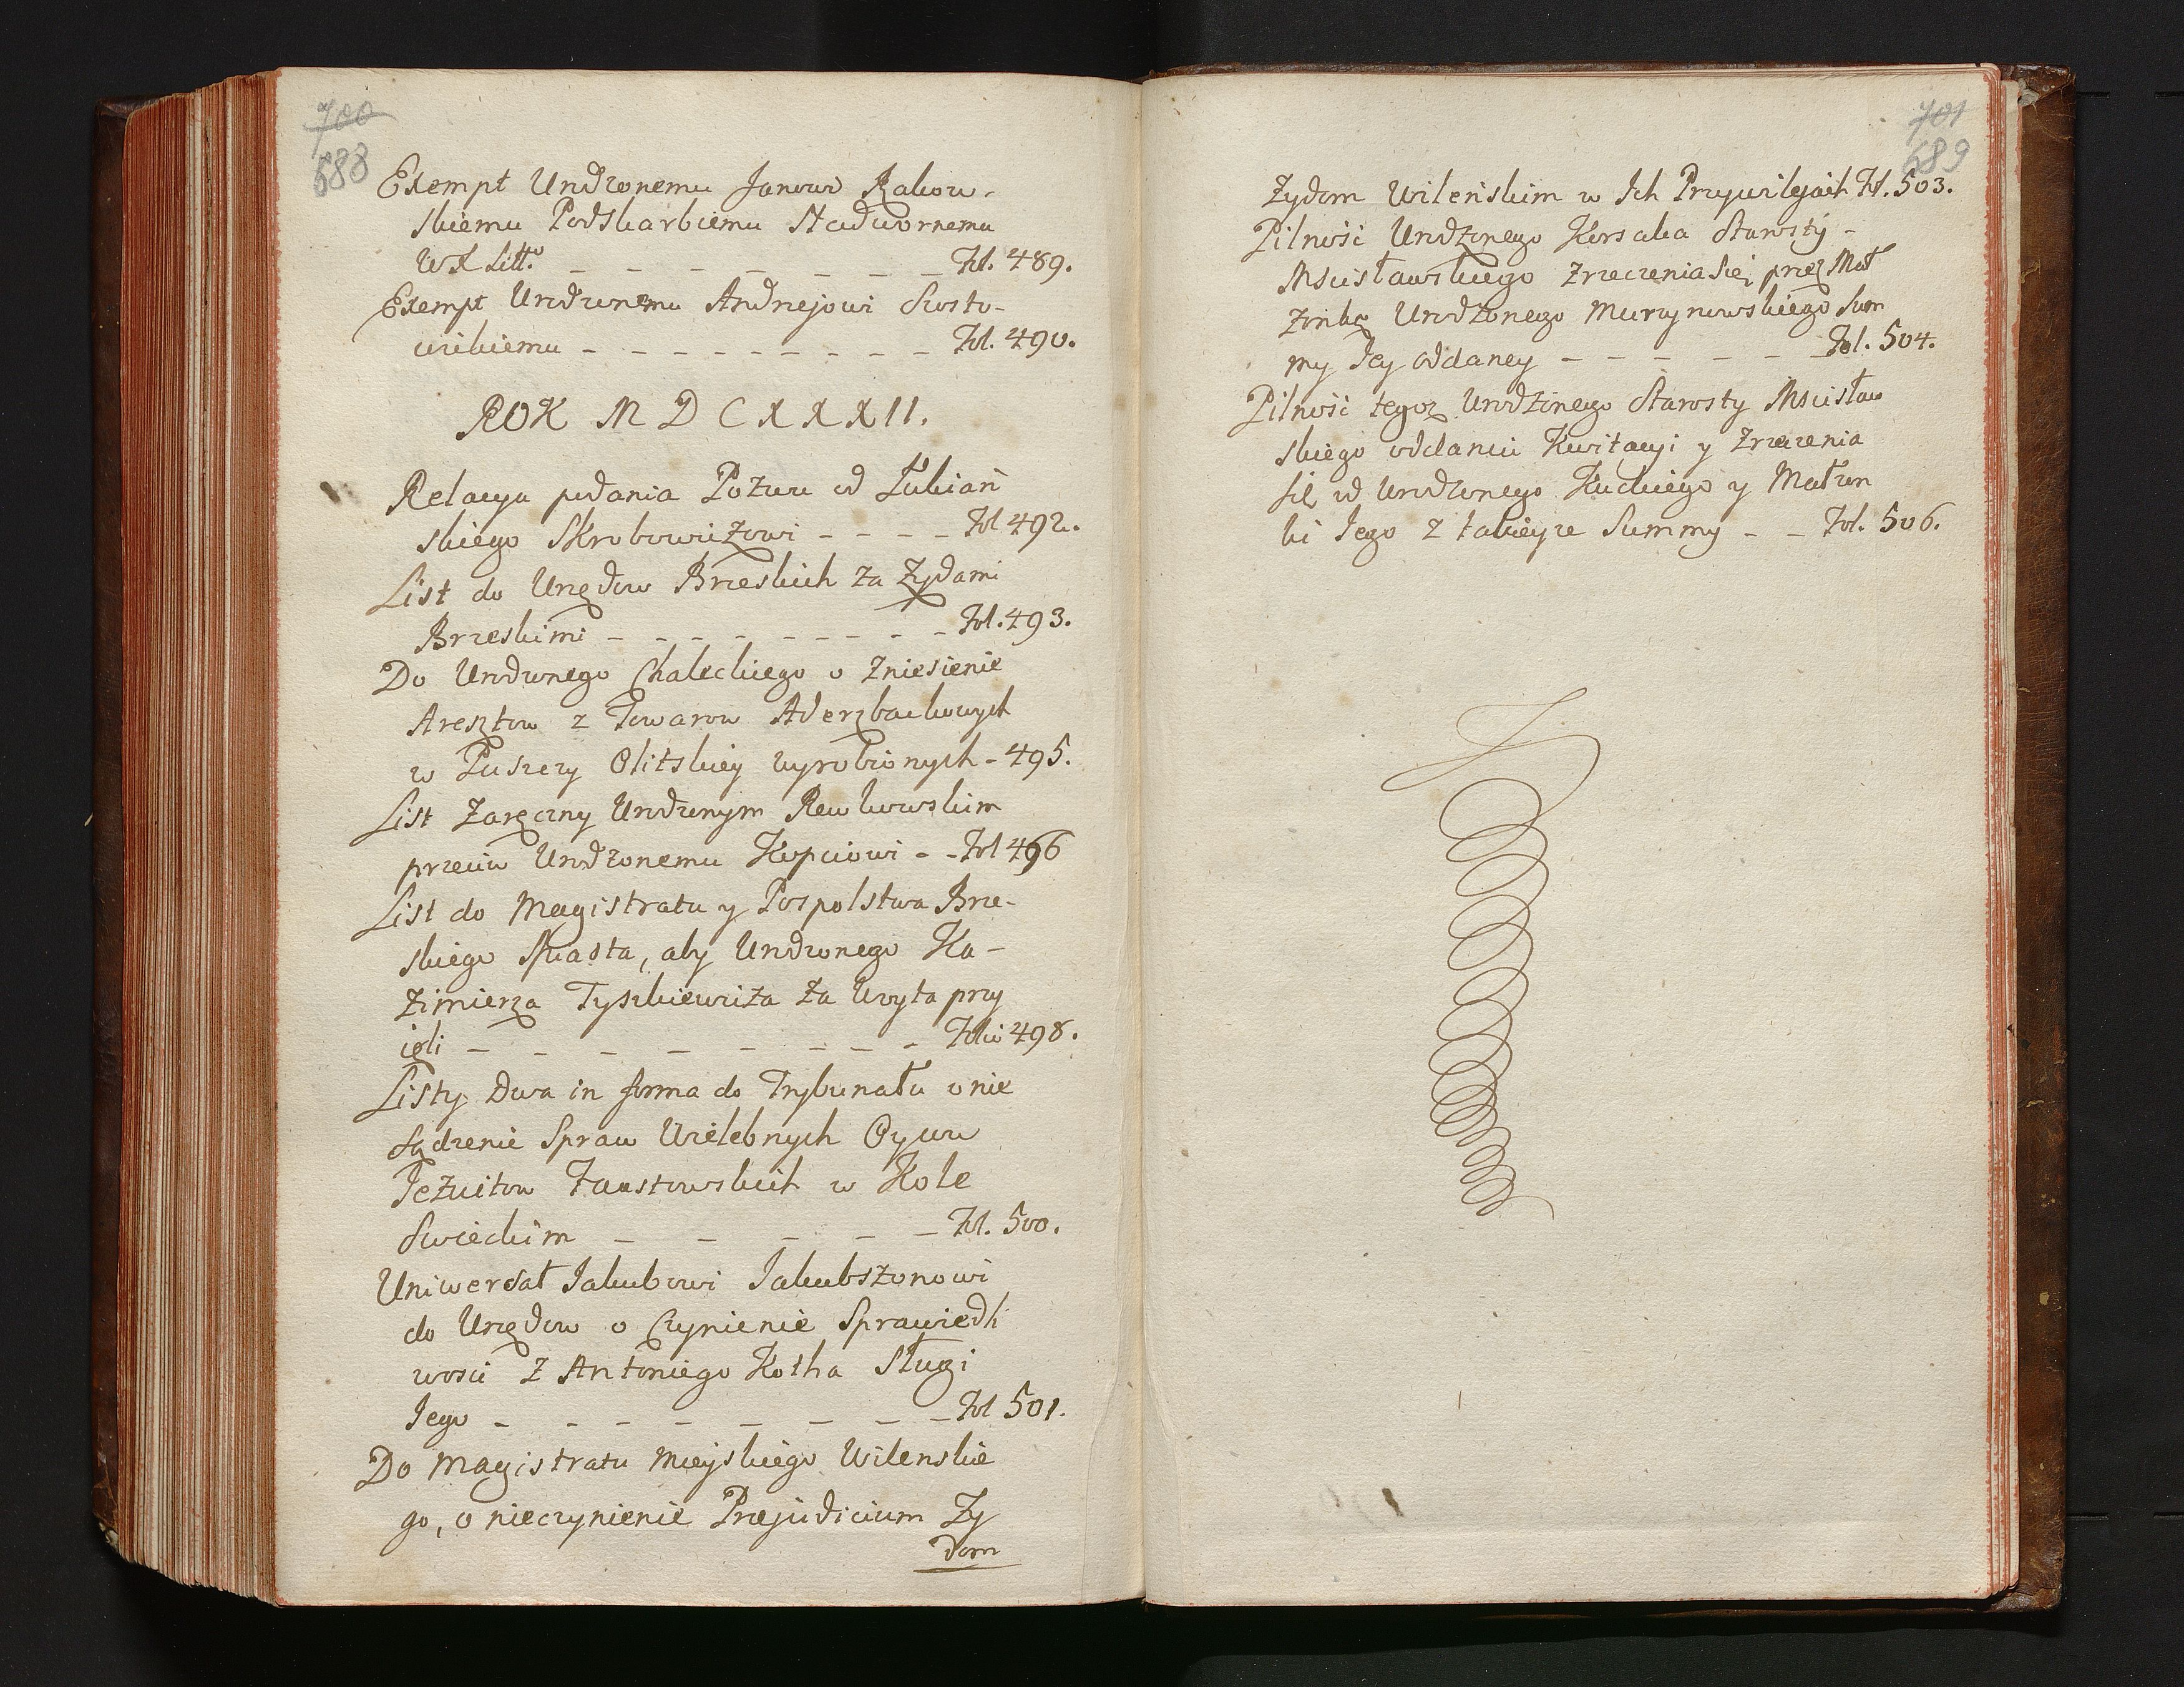 700
688
Exempt Urodzonemu Janowi Rakow-
skiemu Podskarbiemu Nadwornemu
WX Litt. – – – – – – – – Fol. 489.
Exempt Urodzonemu Andrzejowi Sosto-
wickiemu – – – – – – – – – – Fol. 490.
ROK MDCXXXII.
Relacya podania Pozwu od Łukiań
skiego Skrobowiczowi – – – – Fol 492.
List do Urzędow Brzeskich za Zydami
Brzeskimi – – – – – – – – – Fol. 493.
Do Urodzonego Chaleckiego o Zniesienie
Aresztow z Towarow Aderzbachowych
w Puszczy Olitskiey wyrobionych – 495.
List Zaręczny Urodzonym Rewkowskim
przeciw Urodzonemu Kopciowi – – Fol 496
List do Magistratu y Pospolstwa Brze-
skiego Miasta, aby Urodzonego Ka-
zimierza Tyszkiewicza za Woyta przy
ięli – – – – – – – – Folio 498.
Listy dwa in forma do Trybunału o nie
sądzenie Spraw Wielebnych Oycow
Jezuitow Faustowskich w Kole
Swieckim – – – – – Fol. 500.
Uniwersał Jakubowi Jakubszonowi
do Urzędow o Czynienie Sprawiedli
wosci z Antoniego Kotha Sługi
Jego – – – – – – – – Fol 501.
Do Magistratu Mieyskiego Wilenskie
go, o nieczynienie Prejudicium Zy
dom
701
689
Zydom Wileńskim w Ich Przywilejach Fol. 503.
Pilność Urodzonego Korsaka Starosty –
Mscisławskiego Zrzeczenia się przez Mał
zonkę Urodzonego Murzynowskiego Sum
my Jey oddaney – – – – – – Fol. 504.
Pilność tegoż Urodzonego Starosty Mscisław
skiego oddaniu Kwitacyi y Zrzeczenia
się od Urodzonego Kuckiego y Małzon
ki Jego z takieyze Summy – – Fol. 506.